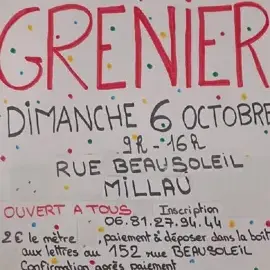 GRENIER
DIMANCHE 6 OCTOBRE
9h - 16h
RUE BEAUSOLEIL
MILLAU
OUVERT A TOUS Inscription
06.81.27.94.44
2€ le mètre, paiement à déposer dans la boît
aux lettres au 152 rue BEAUSOLEIL
Confirmation après paiement